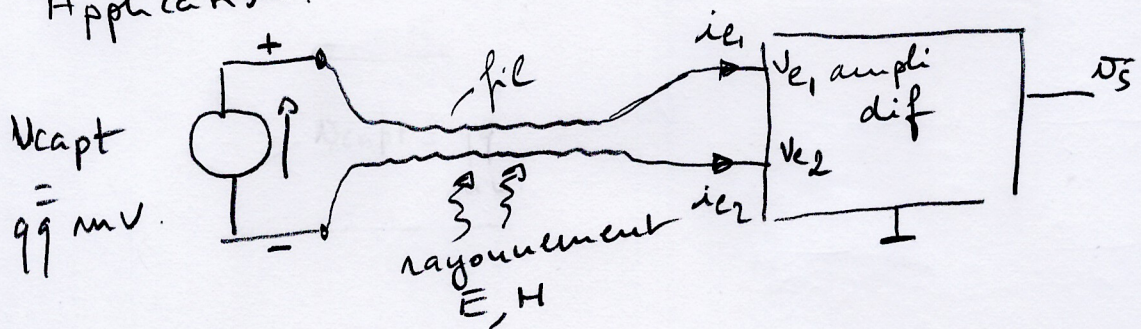 Application
+
Vcapt
=
qq mV.
-
fil
rayonnement
E, H
ie1
ie2
Ve1 ampli
dif
Ve2
Vs